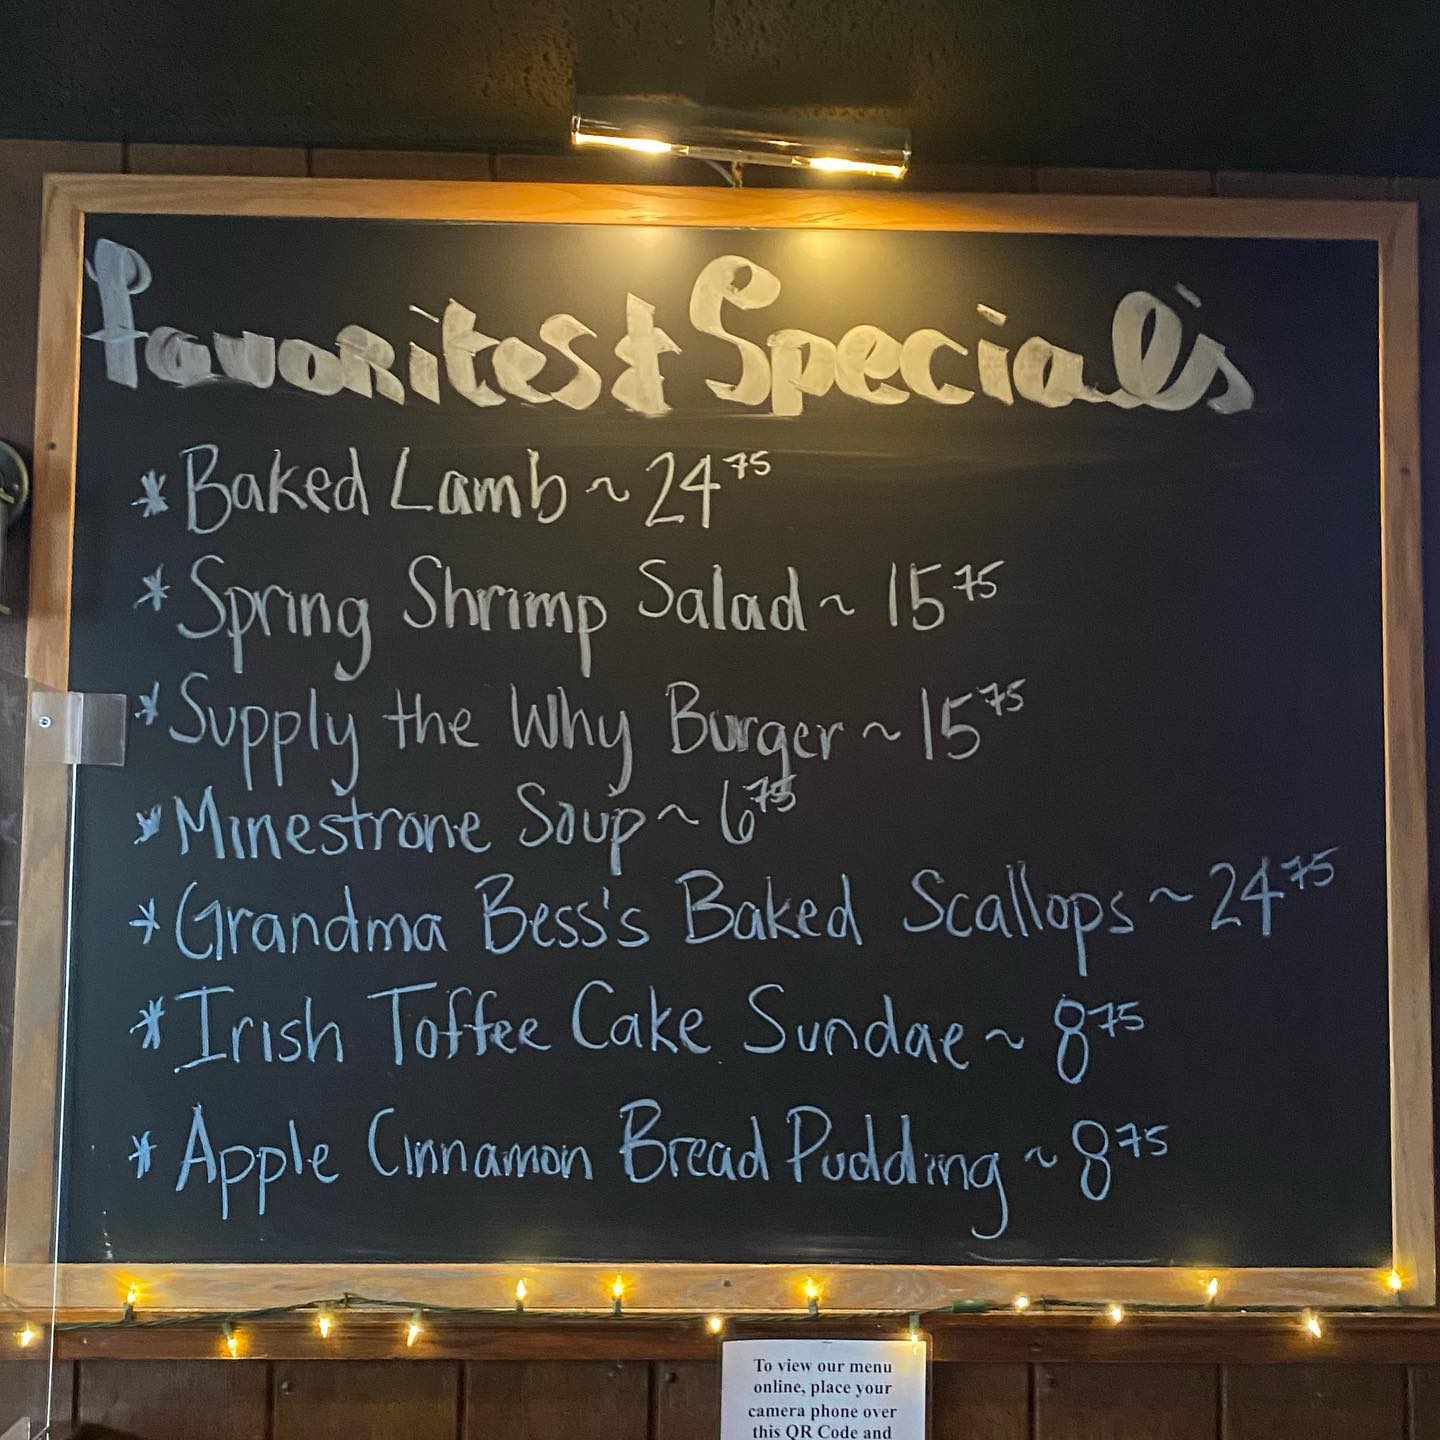 Favorites & Special's
* Baked Lamb ~ 24 75
* Spring Shrimp Salad ~ 15 75
* Supply the Why Burger ~ 15 75
* Minestrone Soup ~ 6 75
* Grandma Bess's Baked Scallops ~ 24 75
* Irish Toffee Cake Sundae ~ 8 75
* Apple Cinnamon Bread Pudding ~ 8 75
To view our menu
online, place your
camera phone over
this QR Code and